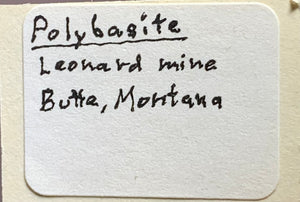 Polybasite
Leonard mine
Butte, Montana